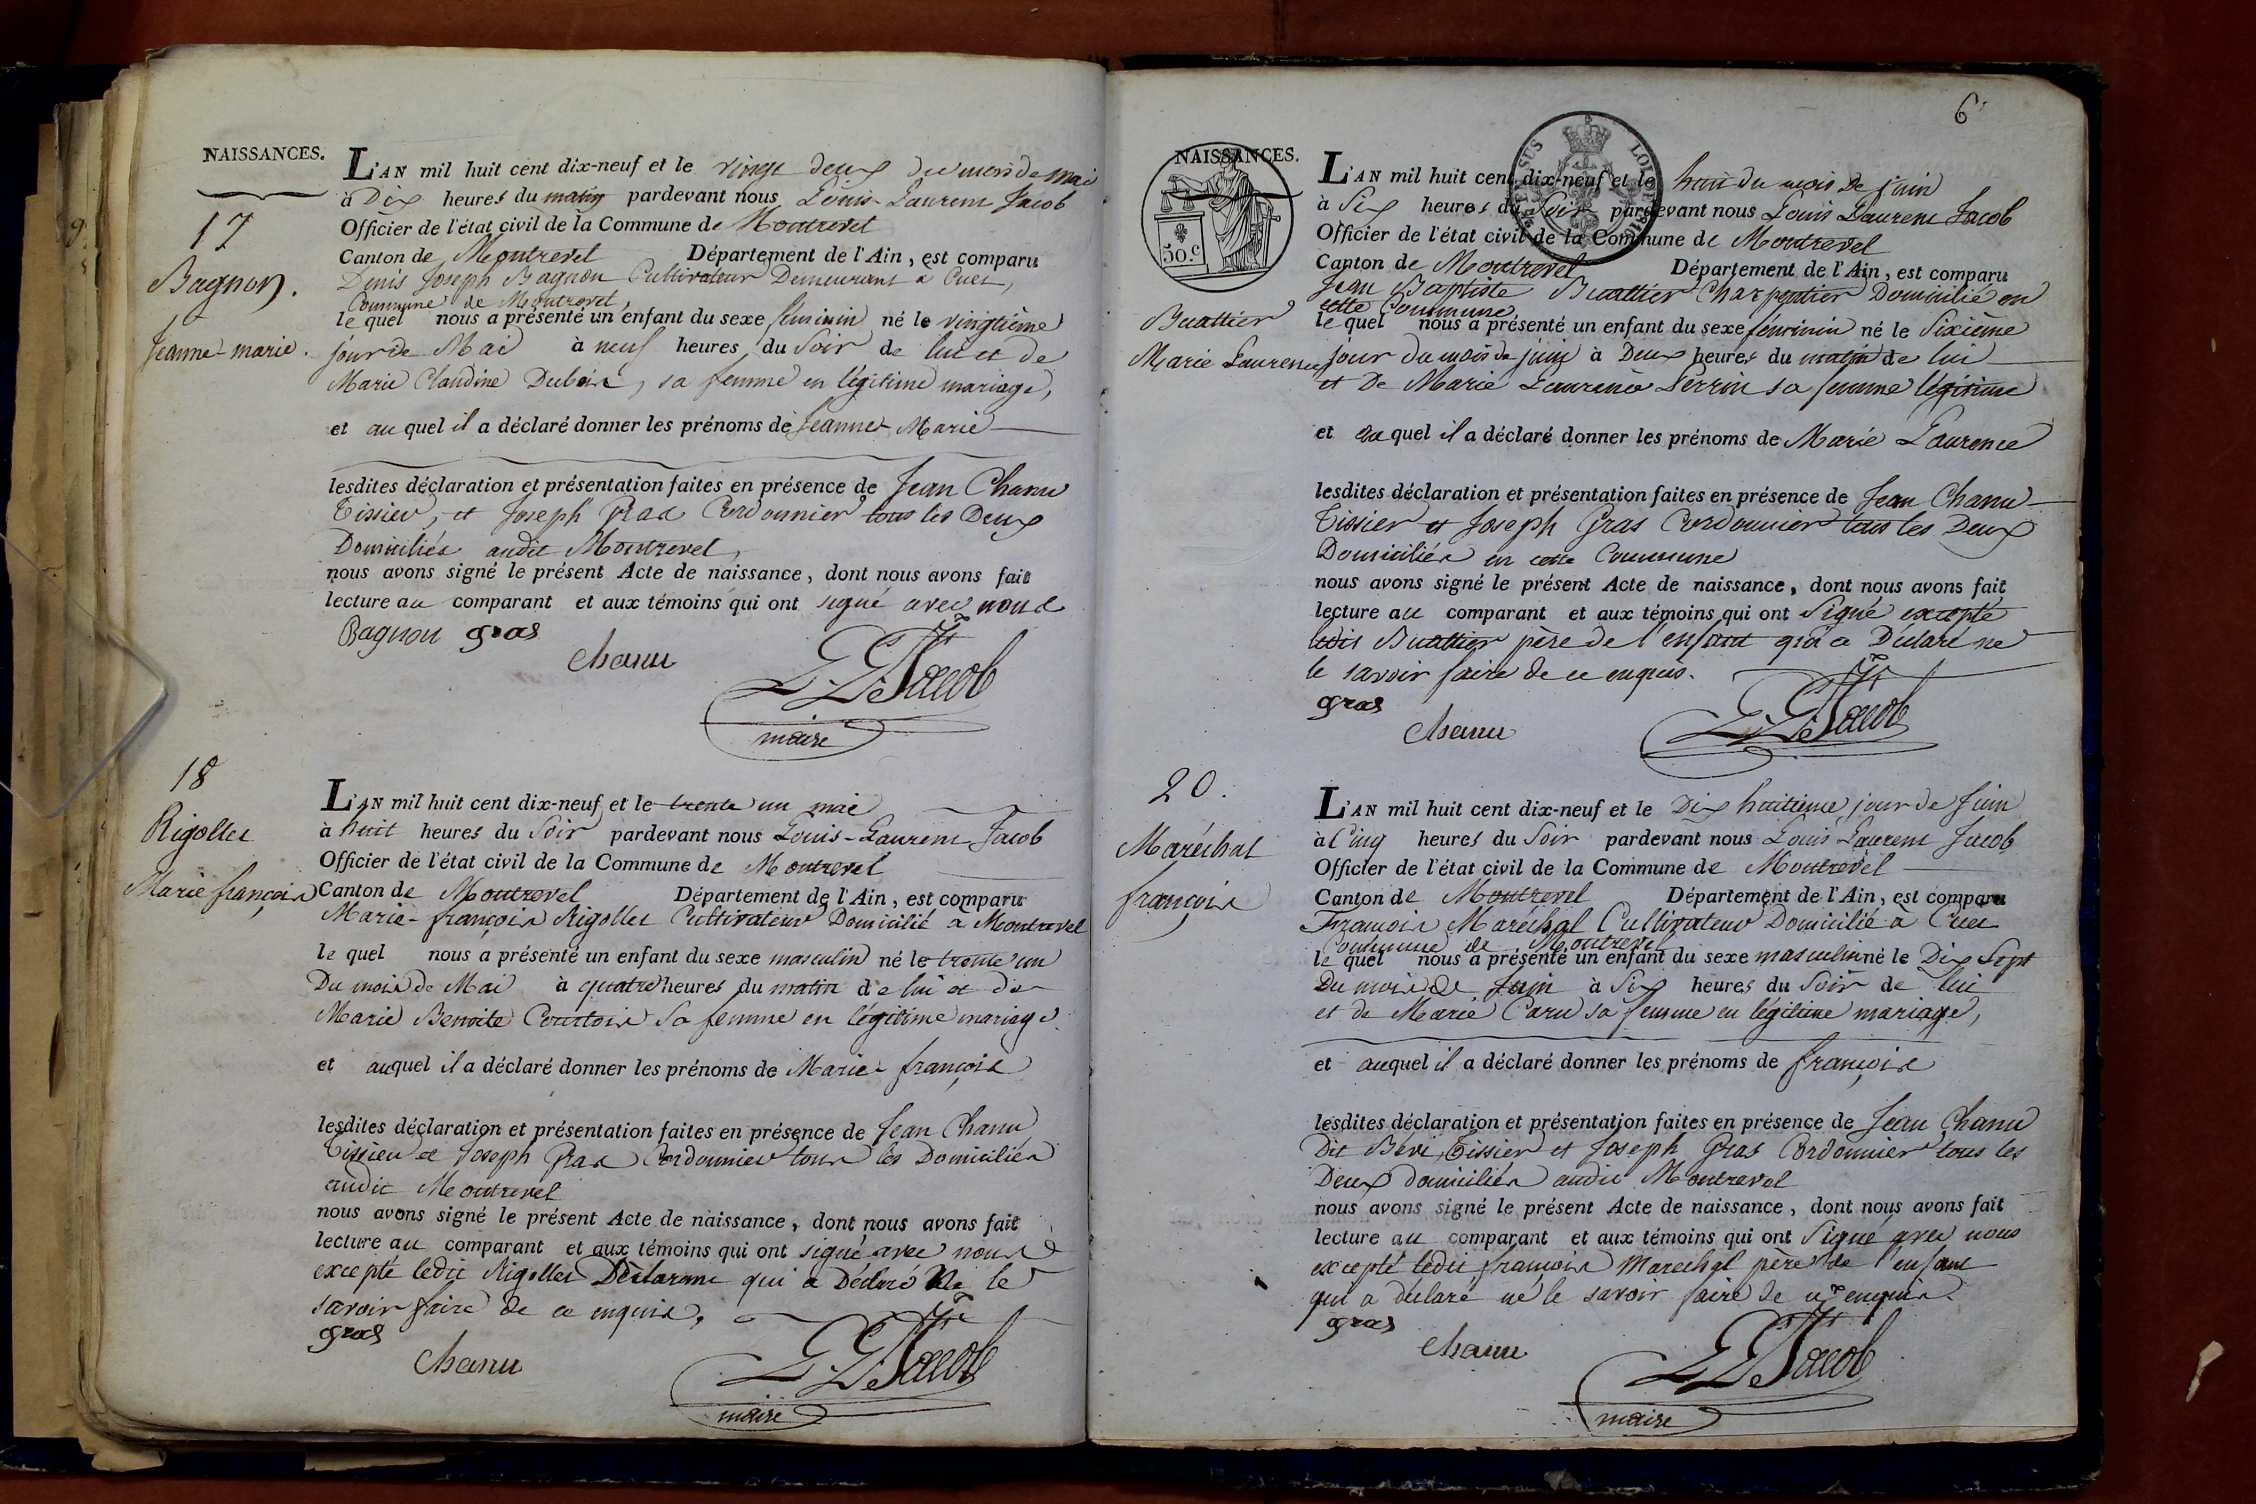 NAISSANCES.
17
Bagnon.
Jeanne-marie.
L'AN mil huit cent dix-neuf et le vingt deux du mois de mai
à Dix heures du matin pardevant nous Louis-Laurent Jacob
Officier de l'état civil de la Commune de Montrevel
Canton de Montrevel Département de l'Ain, est comparu
Denis Joseph Bagnon Cultivateur Demeurant à Cuet,
Commune de Montrevel,
le quel nous a présenté un enfant du sexe feminin né le vingtième
jour de Mai à neuf heures du Soir de lui et de
Marie Claudine Dubois, sa femme en légitime mariage,
et au quel il a déclaré donner les prénoms de Jeanne Marie
lesdites déclaration et présentation faites en présence de Jean Chanu
Tissier, et Joseph Gras Cordonnier tous les Deux
Domiciliés audit Montrevel,
nous avons signé le présent Acte de naissance, dont nous avons fait
lecture au comparant et aux témoins qui ont signé avec nous
Bagnon gras
chanu
L. L. Jacob
maire
18
Rigollet
Marie françois
L'AN mil huit cent dix-neuf et le trente un mai
à huit heures du Soir pardevant nous Louis-Laurent Jacob
Officier de l'état civil de la Commune de Montrevel
Canton de Montrevel Département de l'Ain, est comparu
Marie-françois Rigollet Cultivateur Domicilié a Montrevel
le quel nous a présenté un enfant du sexe masculin né le trente un
Du mois de Mai à quatre heures du matin de lui et de
Marie Benoite Courtois Sa femme en légitime mariage.
et auquel il a déclaré donner les prénoms de Marie-françois
lesdites déclaration et présentation faites en présence de Jean Chanu
Tissier et Joseph Gras Cordonnier tous les Domiciliés
audit Montrevel
nous avons signé le présent Acte de naissance, dont nous avons fait
lecture au comparant et aux témoins qui ont signé avec nous
excepté ledit Rigollet Déclarant qui a Déclaré Ne le
savoir faire de ce enquis.
gras
chanu
L. L. Jacob
maire
6
NAISSANCES.
50.c
LOI
Buattier
Marie Laurence
L'AN mil huit cent dix-neuf et le huit du mois De juin
à Six heures du Soir pardevant nous Louis Laurent Jacob
Officier de l'état civil de la Commune de Montrevel
Canton de Montrevel Département de l'Ain, est comparu
Jean Baptiste Buattier Charpentier Domicilié en
cette Commune
le quel nous a présenté un enfant du sexe féminin né le Sixième
jour du mois de juin à Deux heures du matin de lui
et De Marie Laurence Perrin sa femme légitime
et au quel il a déclaré donner les prénoms de Marie Laurence
lesdites déclaration et présentation faites en présence de Jean Chanu
Tissier et Joseph Gras Cordonnier tous les Deux
Domiciliés en cette Commune
nous avons signé le présent Acte de naissance, dont nous avons fait
lecture au comparant et aux témoins qui ont Signé excepté
Buattier père de l'enfant qui a Déclaré ne
le savoir faire de ce enquis.
gras
chanu
L. L. Jacob
20.
Maréchal
françois
L'AN mil huit cent dix-neuf et le Dix huitieme jour de Juin
à Cinq heures du Soir pardevant nous Louis Laurent Jacob
Officier de l'état civil de la Commune de Montrevel
Canton de Montrevel Département de l'Ain, est comparu
François Maréchal Cultivateur Domicilié à Cuet
Commune de Montrevel
le quel nous a présenté un enfant du sexe masculin né le Dix Sept
Du mois de Juin à Six heures du Soir de lui
et de Marie Caru sa femme en légitime mariage,
et auquel il a déclaré donner les prénoms de françois
lesdites déclaration et présentation faites en présence de Jean Chanu
Dit Tissier et Joseph Gras Cordonnier tous les
Deux domiciliés audit Montrevel
nous avons signé le présent Acte de naissance, dont nous avons fait
lecture au comparant et aux témoins qui ont Signé avec nous
excepté ledit françois Marechal père de l'enfant
qui a déclaré né le savoir faire de ce enquis.
gras
chanu
L. L. Jacob
maire